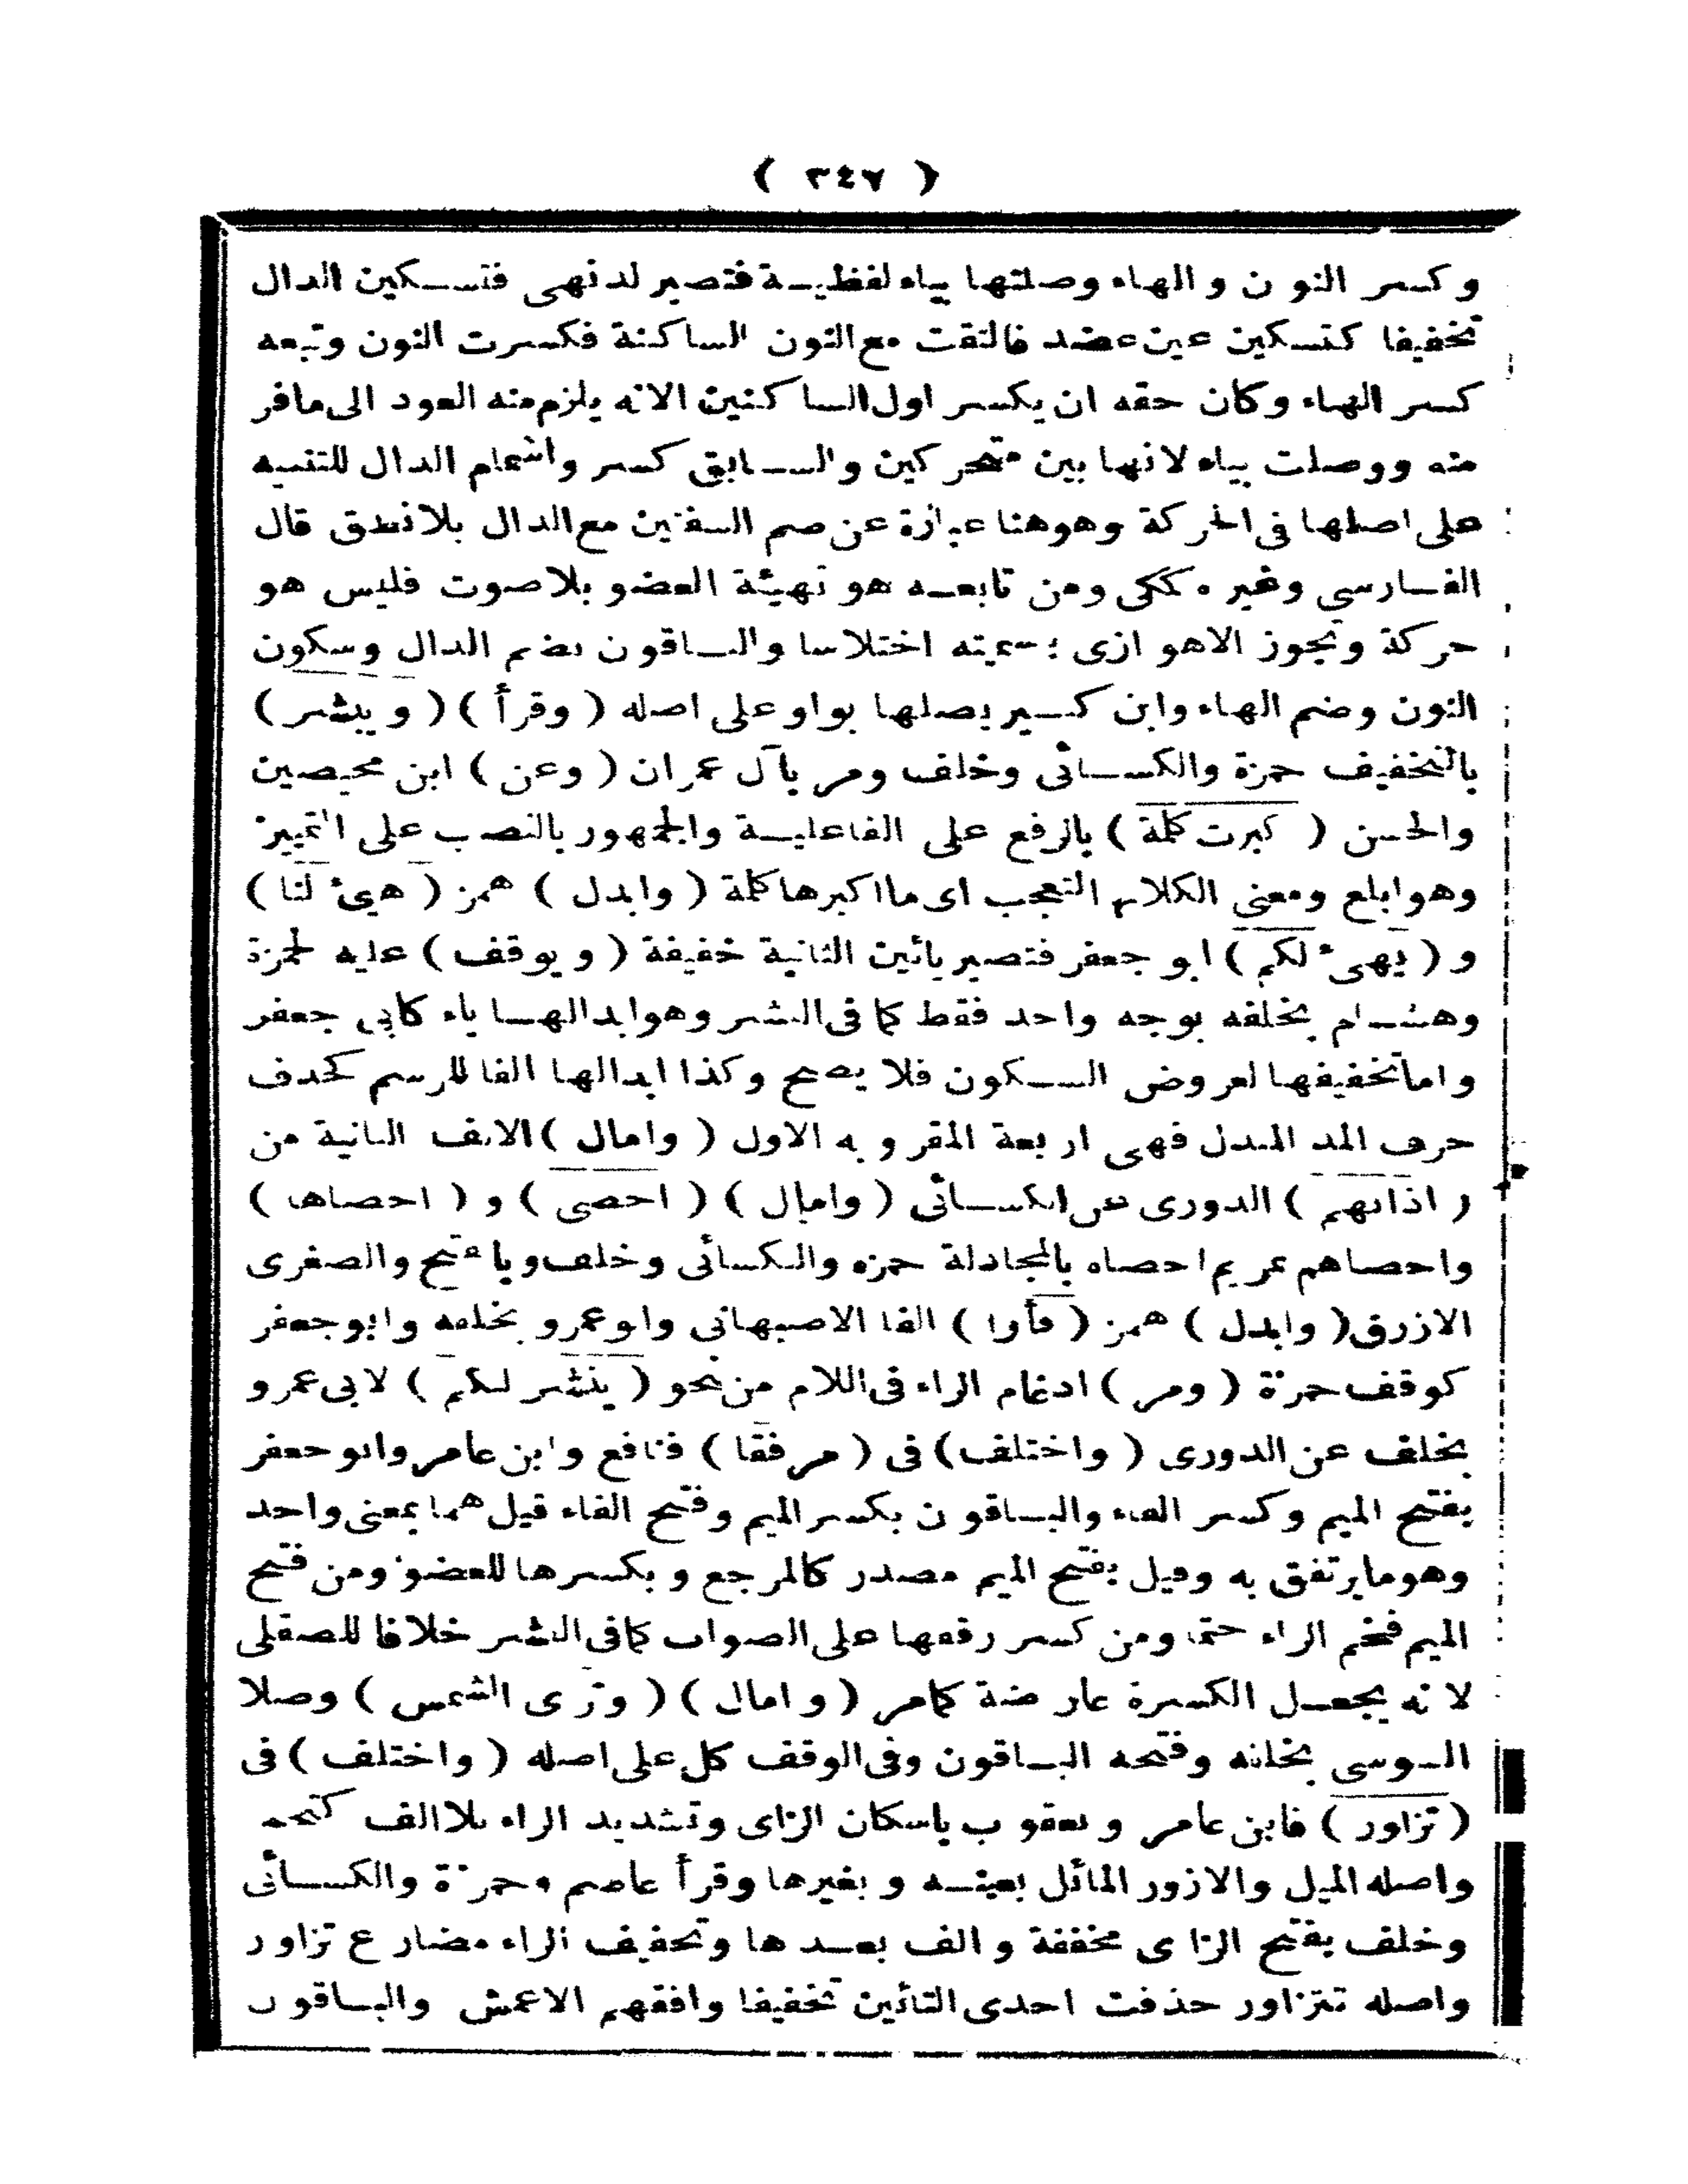 ( ٣٤٧ )
وكسر النون والهاء وصلتها بياء لفظية فتصير لدنهى فتسكين الدال
تخفيفا كتسكين عين عضد فالتقت مع النون الساكنة فكسرت النون وتبعه
كسر الهاء وكان حقه ان يكسر اول الساكنين الا انه يلزم منه العود الى ما فر
منه ووصلت بياء لانها بين متحركين والسابق كسر واشمام الدال للتنبيه
على اصلها فى الحركة وهو هنا عبارة عن ضم الشفتين مع الدال بلا نطق قال
الفارسي وغيره ككى ومن تابعه هو تهيئة العضو بلا صوت فليس هو
حركة وتجوز الاهوازى بتسميته اختلاسا والباقون بضم الدال وسكون
النون وضم الهاء وابن كثير يصلها بواو على اصله ( وقرأ ) ( ويبشر )
بالتخفيف حمزة والكسائى وخلف ومر بآل عمران ( وعن ) ابن محيصين
والحسن ( كبرت كلة ) بالرفع على الفاعلية والجمهور بالنصب على التمييز
وهو ابلغ ومعنى الكلام التعجب اى ما اكبرها كلة ( وابدل ) همز ( هيئ لنا )
و ( يهيئ لكم ) ابو جعفر فتصير يائين الثانية خفيفة ( ويوقف ) عليه لحمزة
وهشام بخلفه بوجه واحد فقط كما فى النشر وهو ابدالها ياء كابى جعفر
واما تخفيفها لعروض السكون فلا يصح وكذا ابدالها الفا للرسم كحذف
حرف المد المبدل فهى اربعة المقروبه الاول ( وامال ) الالف الثانية من
( اذانهم ) الدورى عن الكسائى ( وامال ) ( احصى ) و ( احصاها )
واحصاهم بمريم احصاه بالمجادلة حمزه والكسائى وخلف وبالفتح والصغرى
الازرق ( وابدل ) همز ( فأوا ) الفا الاصبهانى وابو عمرو بخلفه وابو جعفر
كوقف حمزة ( ومر ) ادغام الراء فى اللام من نحو ( ينشر لكم ) لابى عمرو
بخلف عن الدورى ( واختلف ) فى ( مرفقا ) فنافع وابن عامر وابو جعفر
بفتح الميم وكسر الفاء والباقون بكسر الميم وفتح الفاء قيل هما بمعنى واحد
وهو ما يرتفق به وقيل بفتح الميم مصدر كالمرجع وبكسرها للعضو ومن فتح
الميم فخم الراء حتما ومن كسر رققها على الصواب كما فى النشر خلافا للصقلى
لانه يجعل الكسرة عارضة كمامر ( وامال ) ( وترى الشمس ) وصلا
السوسى بخلفه وفتحه الباقون وفى الوقف كل على اصله ( واختلف ) فى
( تزاور ) فابن عامر ويعقوب باسكان الزاى وتشديد الراء بلا الف كتحمر
واصله الميل والازور المائل بعينه وبغيرها وقرأ عاصم وحمزة والكسائى
وخلف بفتح الزاى مخففة والف بعدها وتخفيف الراء مضارع تزاور
واصله تتزاور حذفت احدى التائين تخفيفا وافقهم الاعمش والباقون